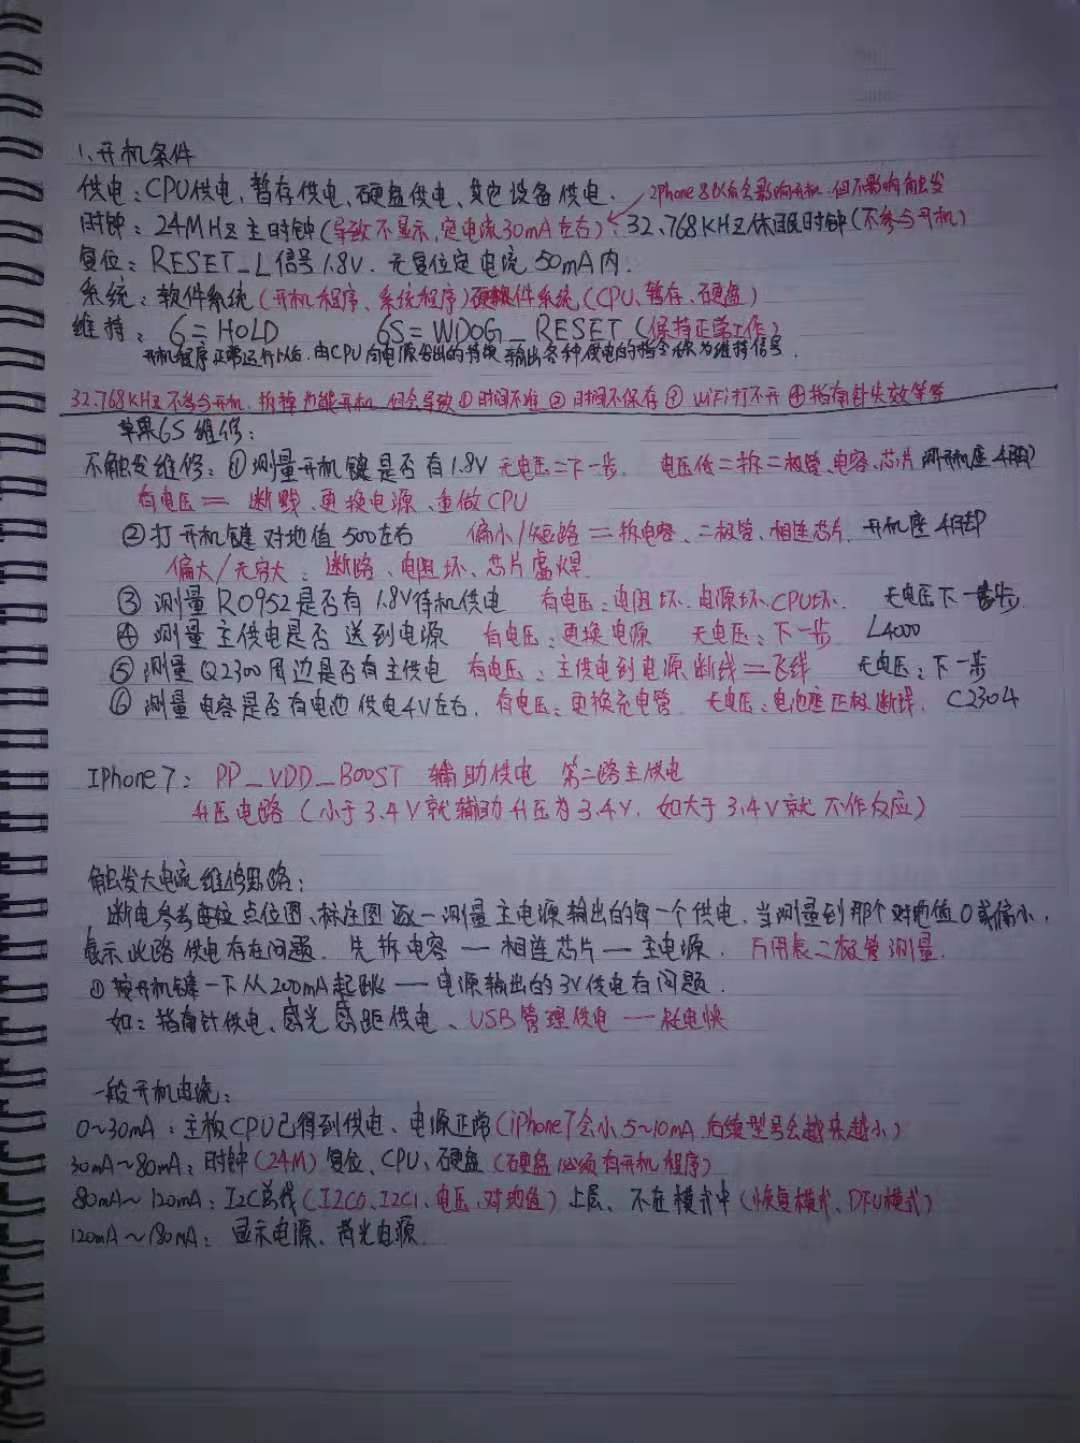 1、开机条件
供电：CPU供电、暂存供电、硬盘供电、其它设备供电. iPhone 8以后会影响开机.但不影响触发
时钟：24MHz主时钟(导致不显示,定电流30mA左右)、32.768KHZ休眠时钟(不参与开机)
复位：RESET_L信号1.8V. 无复位定电流50mA内.
系统：软件系统(开机程序、系统程序)硬件系统(CPU、暂存、硬盘)
维持：6=HOLD 6S=WDOG_RESET(保持正常工作)
开机程序正常运行以后.由CPU向电源发出的持续输出各种供电的指令称为维持信号.
32.768KHZ不参与开机.拆掉也能开机.但会导致①时间不准②时间不保存③WiFi打不开④指南针失效等等
苹果6S维修：
不触发维修：①测量开机键是否有1.8V 无电压=下一步. 电压低=拆二极管、电容、芯片 开机座4脚
有电压= 断线、更换电源、重做CPU
②打开机键对地值500左右 偏小/短路=拆电容、二极管、相连芯片. 开机座4脚
偏大/无穷大：断路、电阻坏、芯片虚焊.
③测量R0952是否有1.8V待机供电 有电压：电阻坏.电源坏.CPU坏. 无电压下一步
④测量主供电是否送到电源 有电压：更换电源 无电压：下一步 L4000
⑤测量Q2300周边是否有主供电 有电压：主供电到电源断线=飞线 无电压：下一步
⑥测量电容是否有电池供电4V左右. 有电压：更换充电管. 无电压：电池座正极断线. C2304
IPhone7：PP_VDD_BOOST 辅助供电 第二路主供电
升压电路(小于3.4V就辅助升压为3.4V.如大于3.4V就不作反应)
触发大电流维修思路：
断电参考点位图、标注图逐一测量主电源输出的每一个供电.当测量到那个对地值0或偏小.
表示此路供电存在问题. 先拆电容—相连芯片—主电源. 万用表二极管测量.
①按开机键一下从200mA起跳—电源输出的3V供电有问题.
如：指南针供电、感光感距供电、USB管理供电—耗电快
一般开机电流：
0~30mA：主板CPU已得到供电、电源正常(iPhone7会小5~10mA.后续型号会越来越小)
30mA~80mA：时钟(24M)复位、CPU、硬盘(硬盘必须有开机程序)
80mA~120mA：I2C总线(I2C0、I2C1、电压、对地值)上层、不在模式中(恢复模式、DFU模式)
120mA~180mA：显示电源、背光电源.